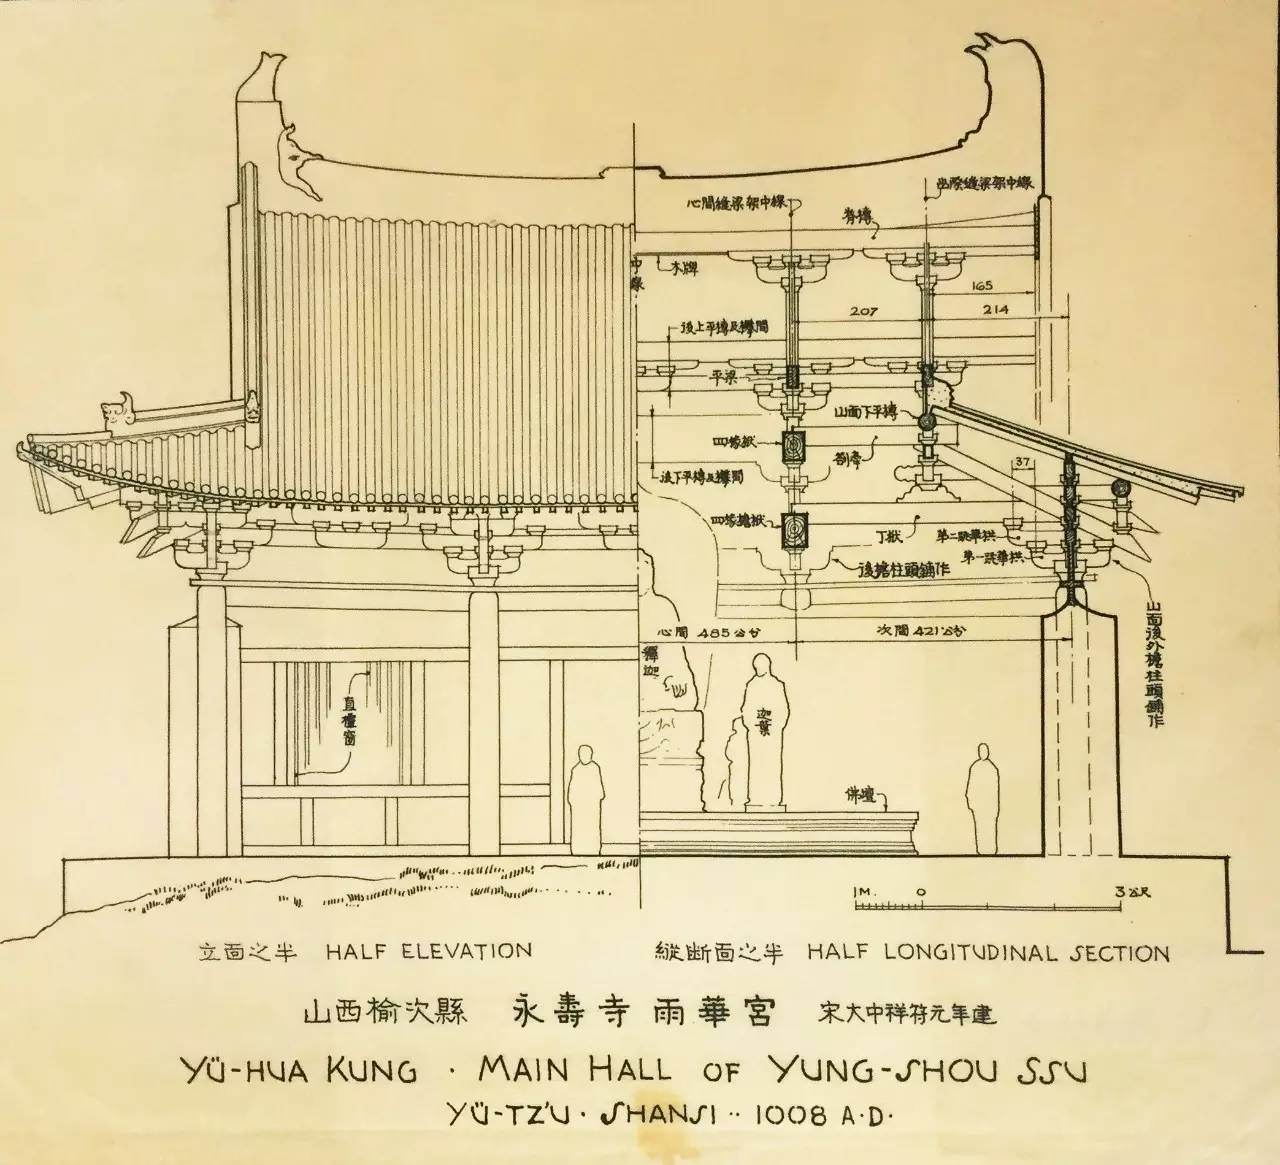 心間縫梁架中線
出際縫梁架中線
脊槫
中線
木牌
165
207
214
後上平槫及襻間
平梁
山面下平槫
四椽栿
劄牽
37
後下平槫及襻間
四椽檐栿
丁栿
第二跳華栱
第一跳華栱
後檐柱頭鋪作
山面後外檐柱頭鋪作
心間 485 公分
次間 421 公分
釋迦
迦葉
直櫺窗
佛壇
1M. 0 3公尺
立面之半 HALF ELEVATION
縱断面之半 HALF LONGITUDINAL SECTION
山西榆次縣 永壽寺雨華宮 宋大中祥符元年建
YÜ-HUA KUNG · MAIN HALL OF YUNG-SHOU SSU
YÜ-TZ'U · SHANSI ·· 1008 A·D·